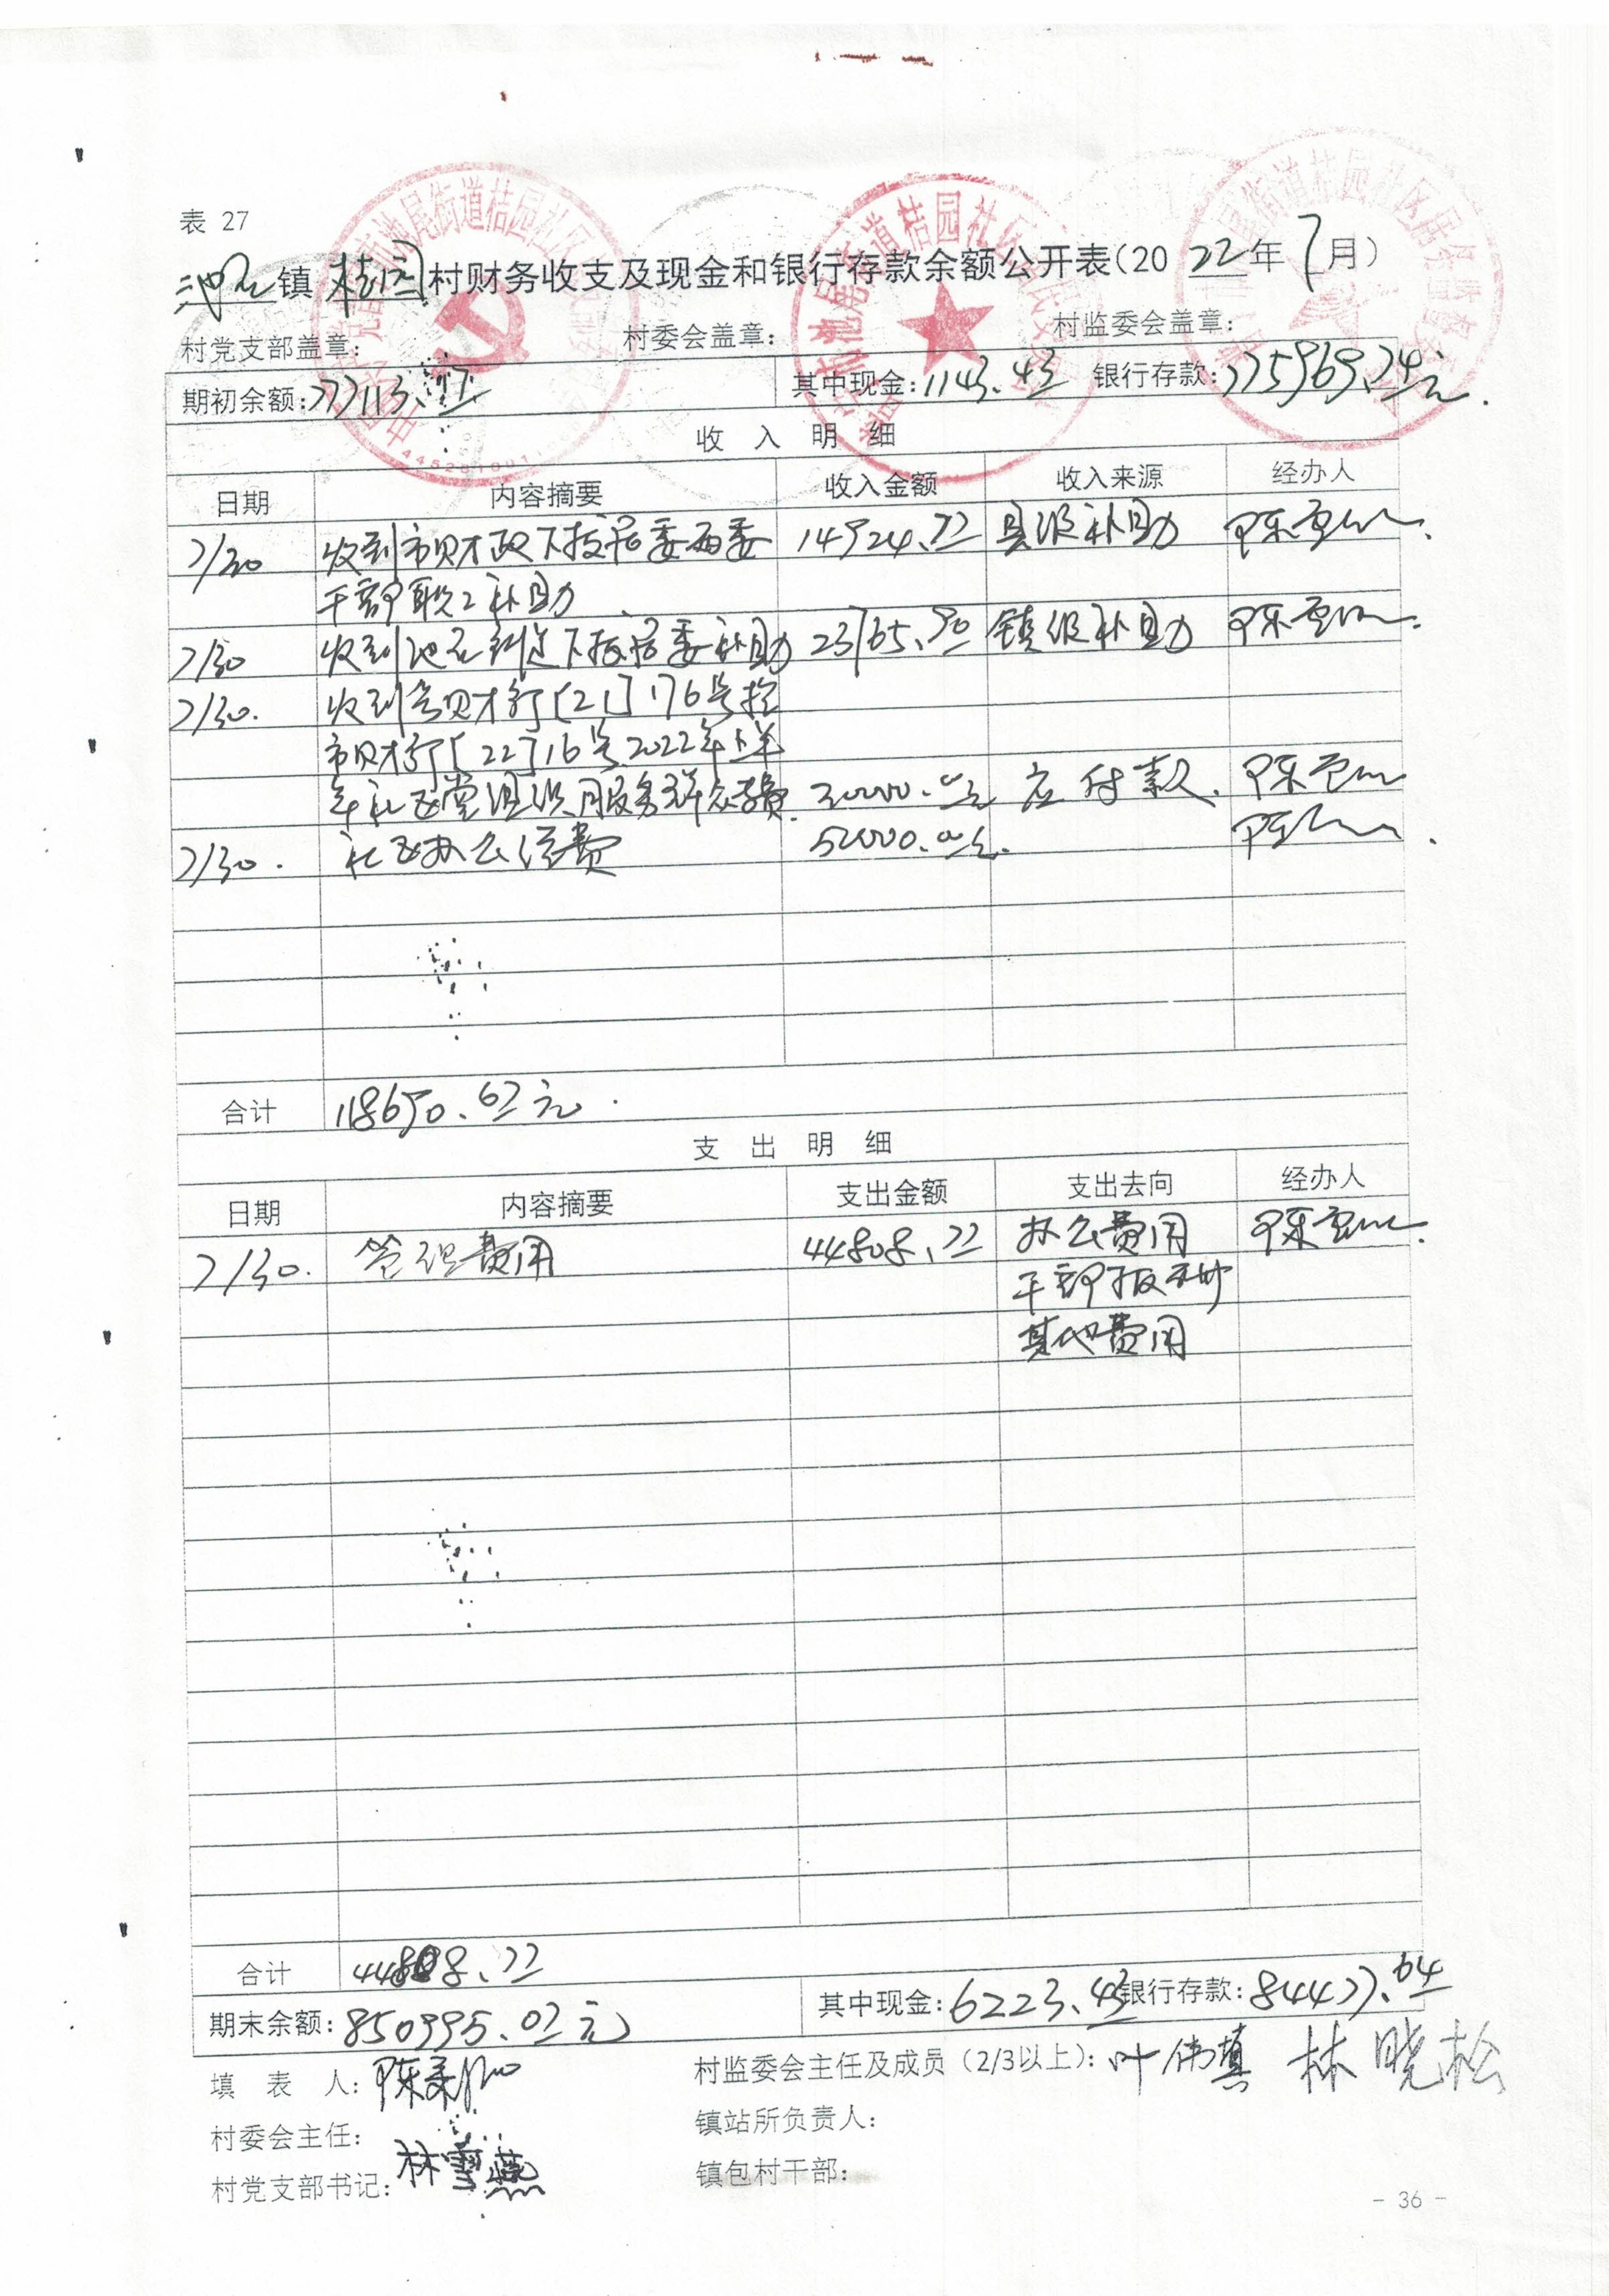 表 27
池尾镇桔园村财务收支及现金和银行存款余额公开表(2022年7月)
村党支部盖章: 村委会盖章: 村监委会盖章:
期初余额:777113.17 其中现金:1143.43 银行存款:775969.74元.
收 入 明 细
日期 内容摘要 收入金额 收入来源 经办人
7/30 收到市财政下拨居委两委 14924.72 县级补助
干部职工补助
7/30 收到池尾街道下拨居委补助 23765.90 镇级补助
7/30. 收到 财行[21]176号
市财行[22]16号2022年上半
年社区党组织服务群众经费. 30000.00元 应付款.
7/30. 社区办公经费 50000.00元.
合计 118690.62元.
支 出 明 细
日期 内容摘要 支出金额 支出去向 经办人
7/30. 管理费用 44808.72 办公费用
干部报酬
其他费用
合计 44808.72
期末余额:850995.07元 其中现金:6223.43 银行存款:84477.64
填 表 人: 村监委会主任及成员(2/3以上): 叶伟填 林晓松
村委会主任: 镇站所负责人:
村党支部书记: 林雪燕 镇包村干部:
- 36 -